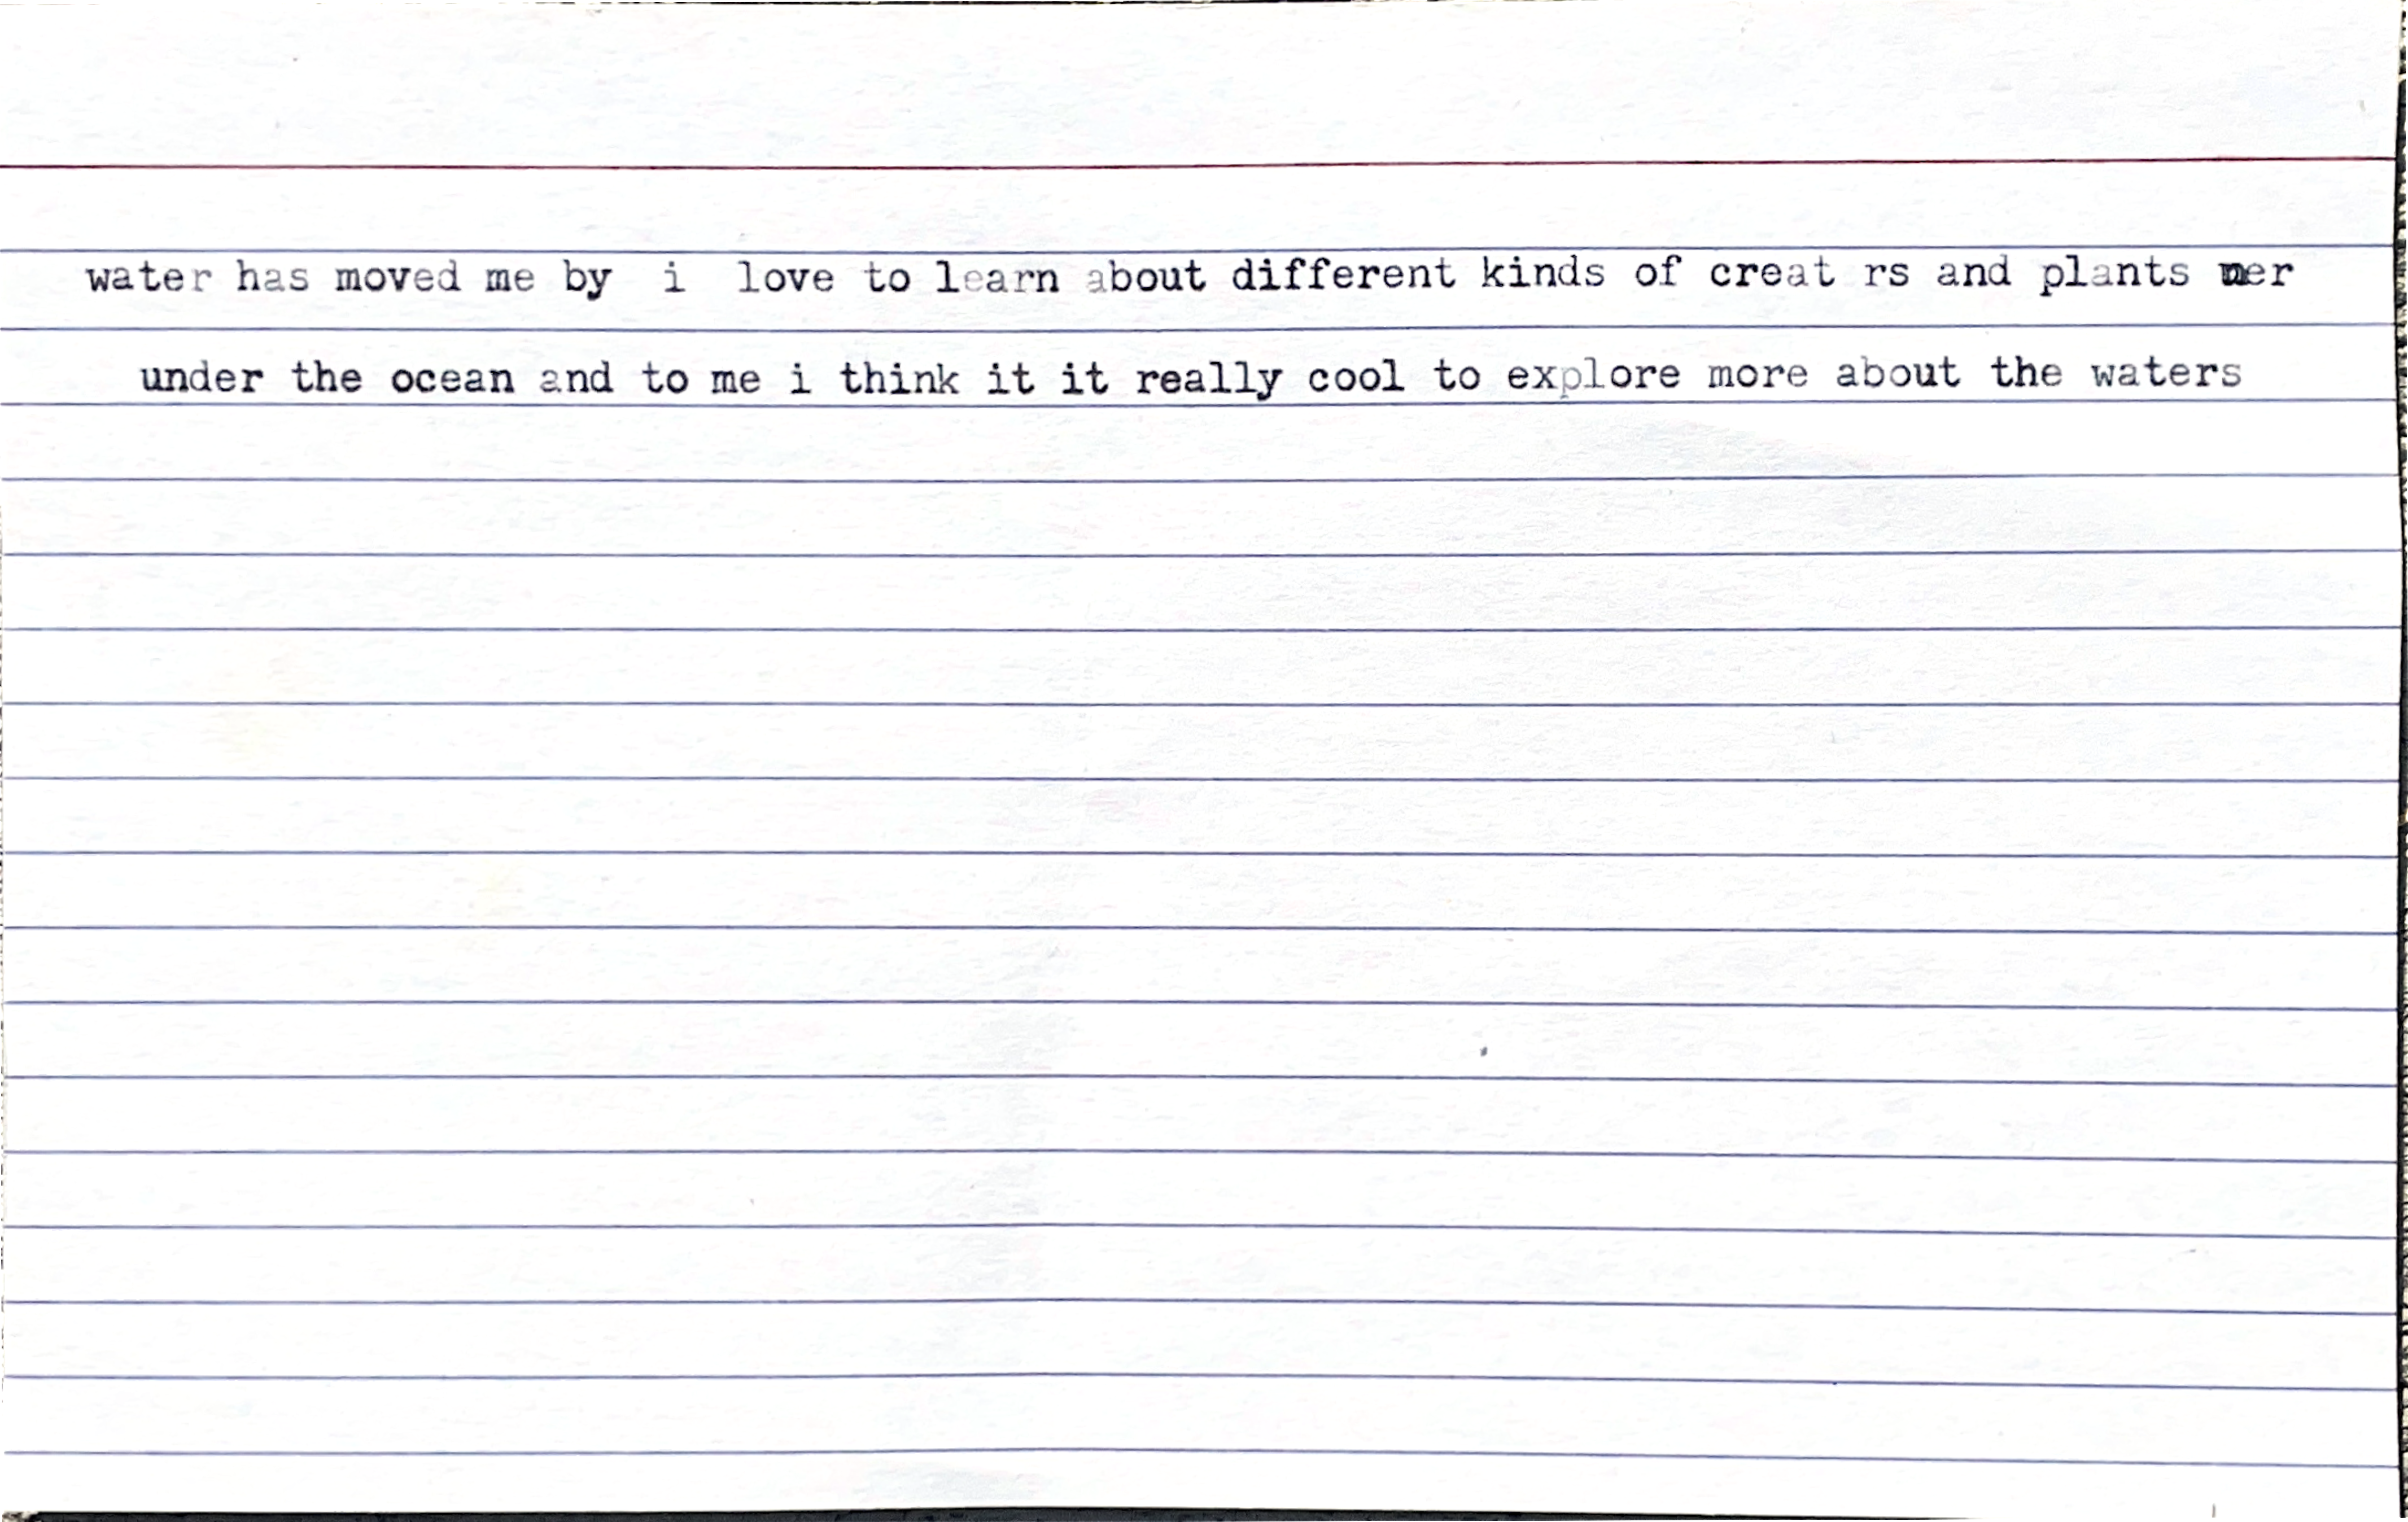 water has moved me by i love to learn about different kinds of creat rs and plants
under the ocean and to me i think it it really cool to explore more about the waters